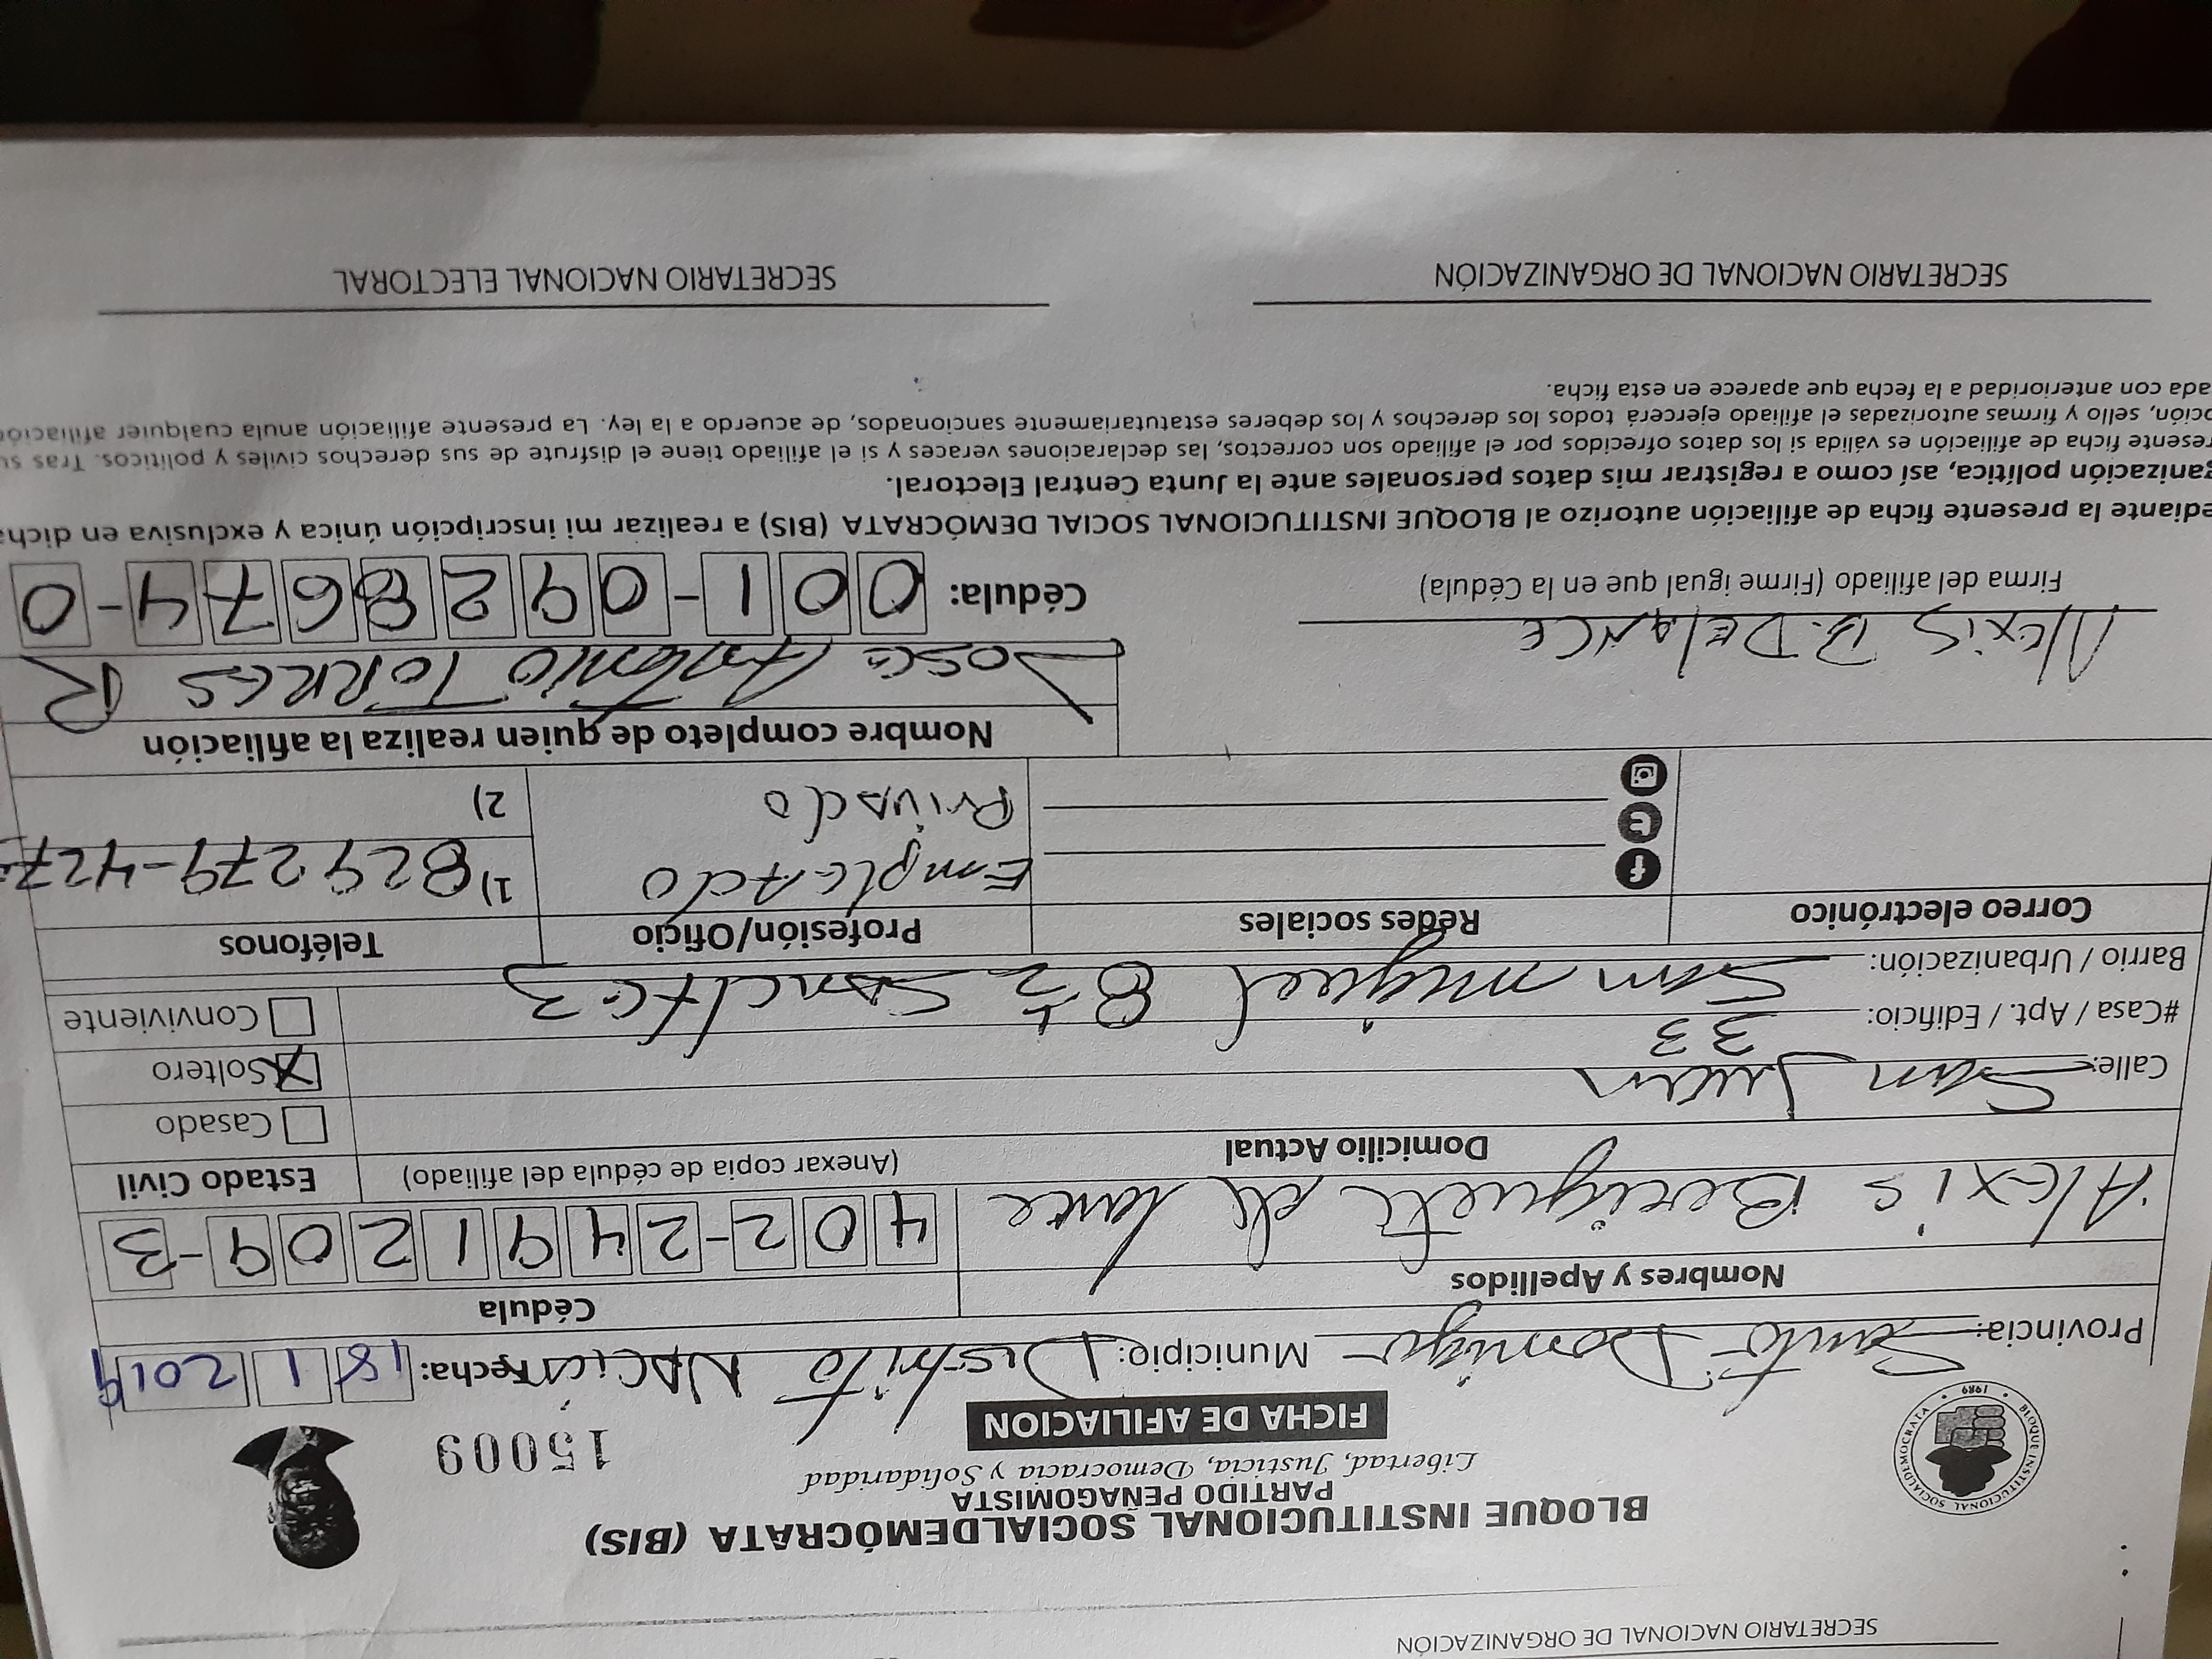 SECRETARIO NACIONAL DE ORGANIZACIÓN
BLOQUE INSTITUCIONAL SOCIALDEMÓCRATA (BIS)
PARTIDO PEÑAGOMISTA
Libertad, Justicia, Democracia y Solidaridad
FICHA DE AFILIACION
15009
BLOQUE INSTITUCIONAL SOCIALDEMOCRATA
1989
Provincia: Santo Domingo Municipio: Distrito Nacional Fecha: 18 1 2019
Nombres y Apellidos Cédula
Alexis Beriguete de lance 402-2491209-3
Domicilio Actual (Anexar copia de cédula del afiliado) Estado Civil
Calle: San Juan
Casado
#Casa / Apt. / Edificio: 33
X Soltero
Barrio / Urbanización: San miguel 8½
Conviviente
Correo electrónico Redes sociales Profesión/Oficio Teléfonos
EmpleAdo
PrivAdo
1) 829 279-427
2)
Nombre completo de quien realiza la afiliación
Jose Antonio TORRES R
Alexis B. DelANCE
Firma del afiliado (Firme igual que en la Cédula)
Cédula: 001-0928674-0
ediante la presente ficha de afiliación autorizo al BLOQUE INSTITUCIONAL SOCIAL DEMÓCRATA (BIS) a realizar mi inscripción única y exclusiva en dicha
ganización política, así como a registrar mis datos personales ante la Junta Central Electoral.
resente ficha de afiliación es válida si los datos ofrecidos por el afiliado son correctos, las declaraciones veraces y si el afiliado tiene el disfrute de sus derechos civiles y políticos. Tras su
pción, sello y firmas autorizadas el afiliado ejercerá todos los derechos y los deberes estatutariamente sancionados, de acuerdo a la ley. La presente afiliación anula cualquier afiliación
ada con anterioridad a la fecha que aparece en esta ficha.
SECRETARIO NACIONAL DE ORGANIZACIÓN
SECRETARIO NACIONAL ELECTORAL